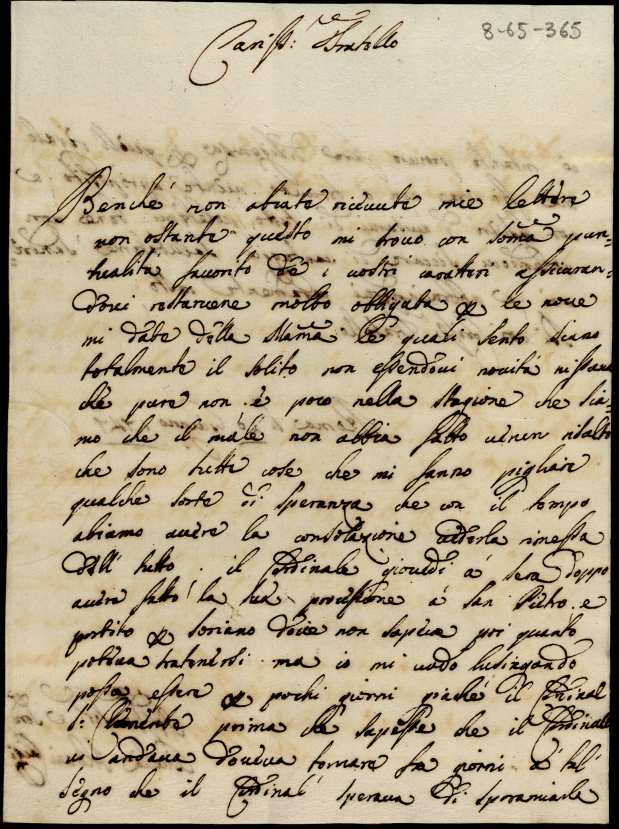 8-65-365
Cariss.: Fratello
Benche' non abiate riceuute mie lettere
non ostante questo mi trouo con som̃a pun=
tualità fauorito de i uostri caratteri assicuran=
doui restaruene molto obligata le noue
mi date della Mam̃a le quali sento siano
totalmente il solito non essendoui nouità nissuna
che pure non è poco nella stagione che sia=
mo che il male non abbia fatto uerun risalto
che sono tutte cose che mi fanno pigliare
qualche sorte di speranza che con il tempo
abiamo auere la consolazione uederla rimessa
dell' tutto. il Cardinale giouedi à sera doppo
auere fatto la sua processione à San Pietro e
partito Soriano doue non sapeua poi quanto
poteua tratenersi ma io mi uado lusingando
possa essere pochi giorni giachè il Cardinal
S: Clemente prima che sapesse che il Cardinale
ui andaua doueua tornare fra giorni à tal'
segno che il Cardinal' speraua di sporamiarle